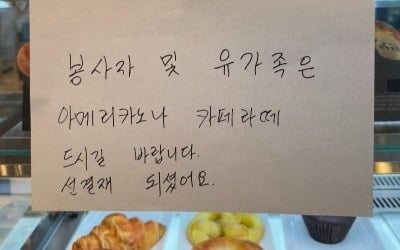 봉사자 및 유가족은
아메리카노나 카페라떼
드시길 바랍니다.
선결재 되셨어요.